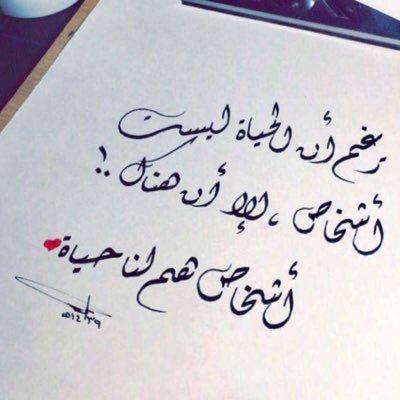 رغم أن الحياة ليست
أشخاص ، إلا أن هناك !.
أشخاص هم لنا حياة
١٤٣٩هـ